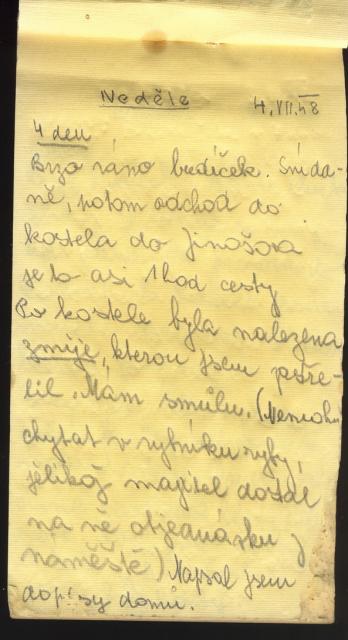 Neděle 4. VII. 48
4 den
Brzo ráno budíček. Snída-
ně, potom odchod do
kostela do Jinošova
je to asi 1 hod cesty
Po kostele byla nalezena
zmije, kterou jsem postře-
lil. Mám smůlu. (Nemohu
chytat v rybníku ryby,
jélikož majitel dostal
na ně objednávku z
náměště) Napsal jsem
dopisy domů.